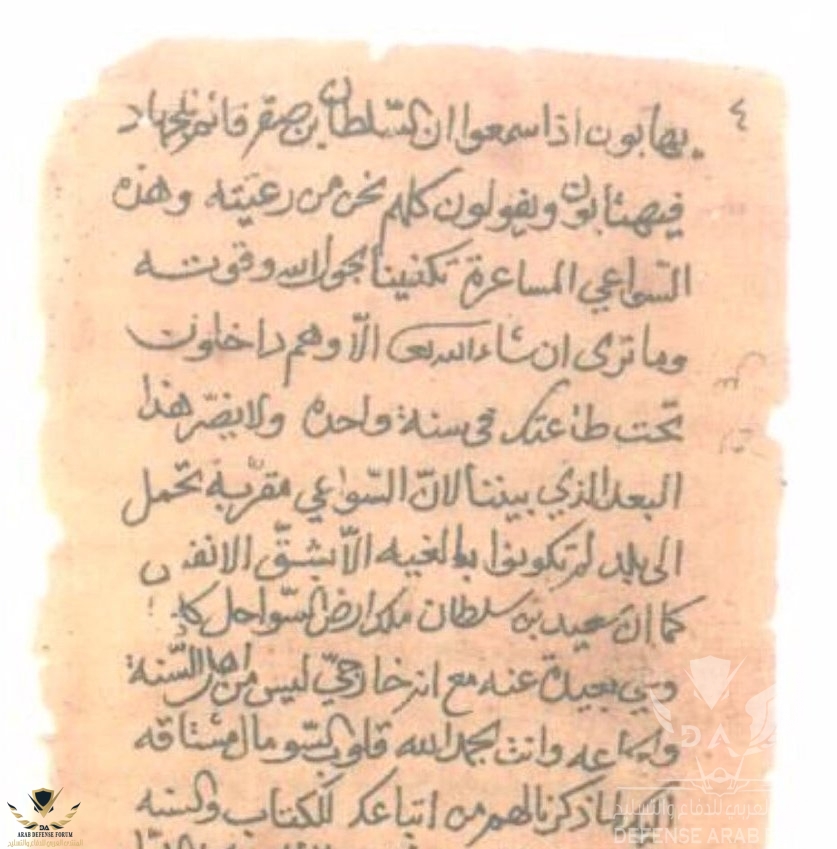 ٤
يهابون اذا سمعوا ان السّلطان بن صقر قائم بالجهاد
فيهتابون ويقولون كلهم نحن من رعيّته وهذه
السّواعي المساعرة تكفينا بحول الله وقوته
وما ترى ان شاء الله تعا الاّ وهم داخلون
تحت طاعتك فى سنة واحده ولا يضرّ هذا
البعد الذي بيننا لانّ السّواعي مقرّبة تحمل
الى بلد لم تكونوا بالغيه الاّ بشقّ الانفس
كما ان سعيد بن سلطان ملك ارض السّواحل
وهي بعيدة عنه مع انه خارجيّ ليس من اهل السّنة
والجماعه وانت بحمد الله قلوب السّومال مشتاقه
ذكرنا لهم من اتباعك للكتاب والسنه
DA
ARAB DEFENSE FORUM
DEFENSE ARAB